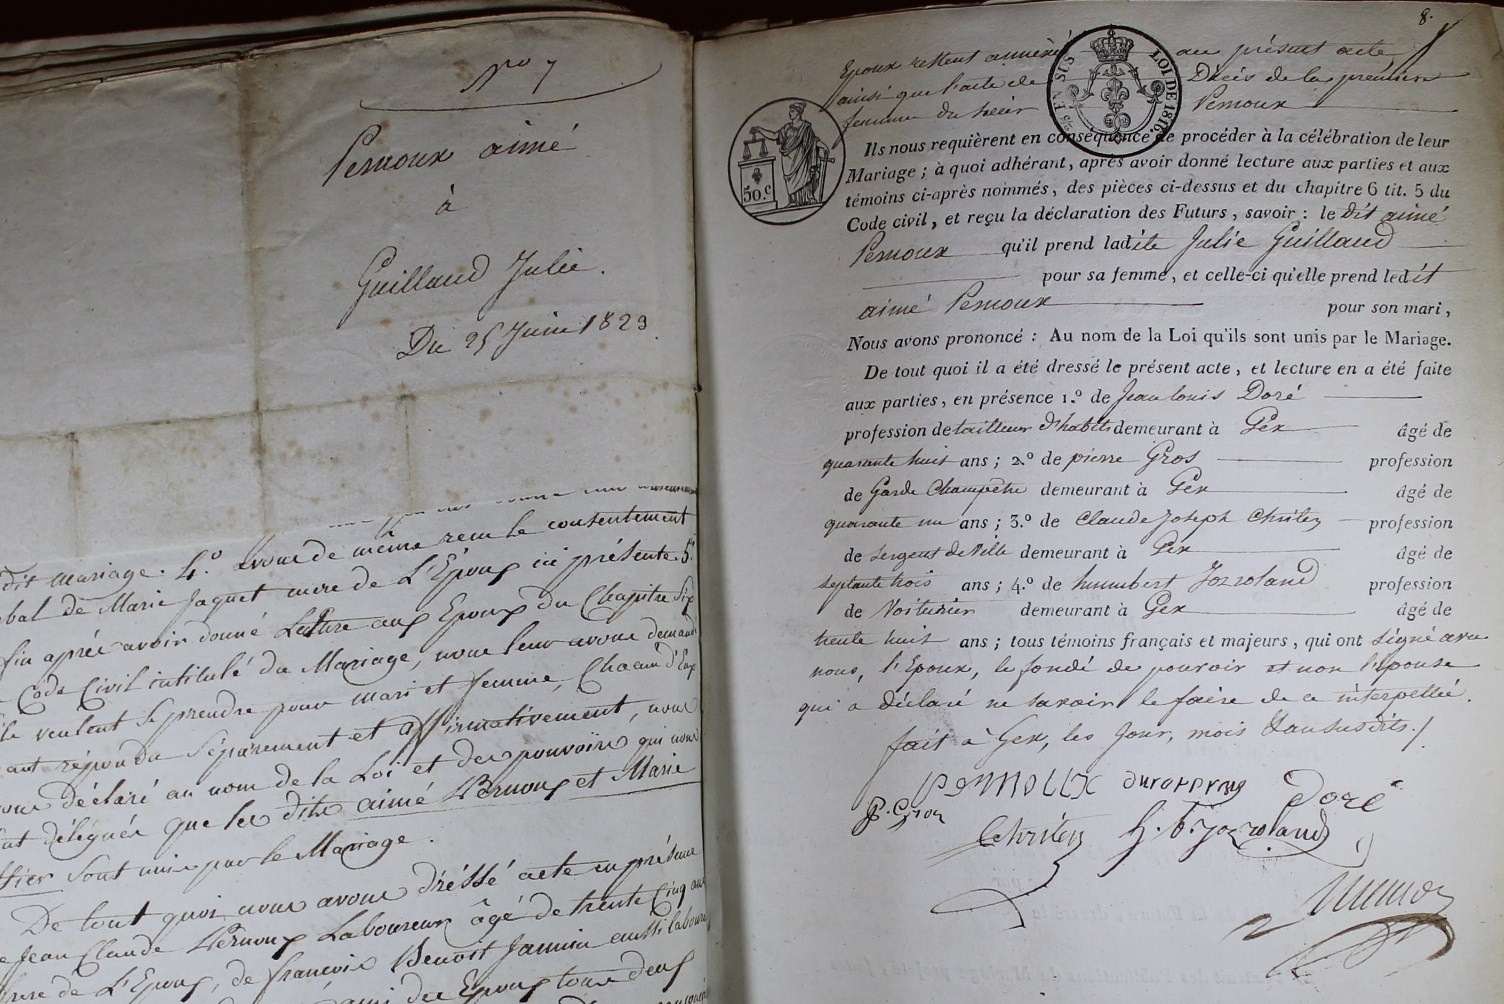 No 7
Pernoux aimé
à
Guilland Julie.
Du 25 Juin 1829
dit mariage. 4.o avons de même reçu le consentement
bal de Marie Jaquet mere de L'Epoux ici présente 5.o
fin après avoir donné Lecture aux Epoux du Chapitre Six
Code Civil intitulé du Mariage, nous leur avons demandé
le veulent se prendre pour mari et femme, Chacun d'Eux
ant répondu Séparement et affirmativement, nous
avons déclaré au nom de la Loi et des pouvoirs qui nous
sont délégués que les dits aimé Pernoux et Marie
tier sont unis par le Mariage.
De tout quoi nous avons dréssé acte en présence
Jean Claude Pernoux Laboureur âgé de trente Cinq ans
frere de L'Epoux, de françois Benoit Jannin aussi laboure
ami des Epoux tous deux
8.
Epoux restent annexés au présent acte
ainsi que l'acte de Décès de la première
femme du sieur Pernoux
EN SUS LOI DE 1816.
50.c
Ils nous requièrent en conséquence de procéder à la célébration de leur
Mariage ; à quoi adhérant, après avoir donné lecture aux parties et aux
témoins ci-après nommés, des pièces ci-dessus et du chapitre 6 tit. 5 du
Code civil, et reçu la déclaration des Futurs, savoir : le dit aimé
Pernoux qu'il prend ladite Julie Guilland
pour sa femme, et celle-ci qu'elle prend ledit
aimé Pernoux pour son mari,
Nous avons prononcé : Au nom de la Loi qu'ils sont unis par le Mariage.
De tout quoi il a été dressé le présent acte, et lecture en a été faite
aux parties, en présence 1.o de Jean louis Doré
profession de tailleur d'habits demeurant à Gex âgé de
quarante huit ans ; 2.o de pierre Gros profession
de Garde Champêtre demeurant à Gex âgé de
quarante un ans ; 3.o de Claude Joseph Christin profession
de Sergent de Ville demeurant à Gex âgé de
septante trois ans ; 4.o de humbert Jozroland profession
de Voiturier demeurant à Gex âgé de
trente huit ans ; tous témoins français et majeurs, qui ont signé avec
nous, l'Epoux, le fondé de pouvoir et non l'epouse
qui a déclaré ne savoir le faire de ce interpellée.
fait à Gex, les Jour, mois & an susdits./
PERNOUX Doré
P. Gros
Christin h. b. Jozroland